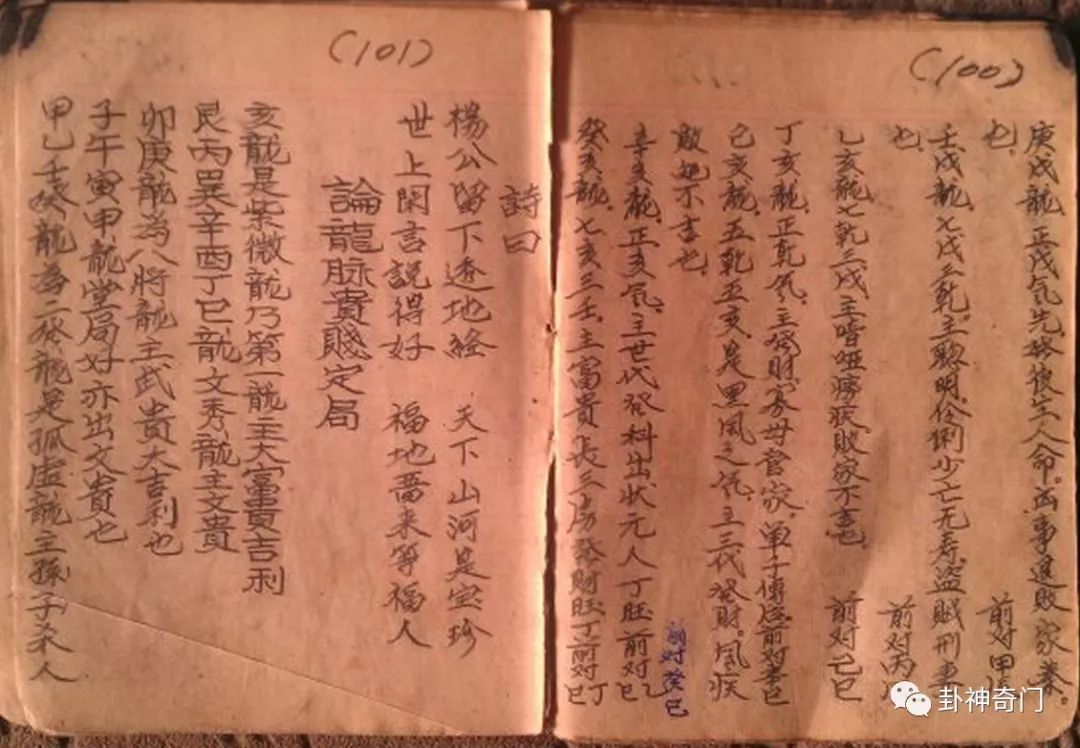 (100)
庚戌龍，正戌气先
人命。凶事進敗家業。
前对甲
也。
壬戌龍，七戌三乾，主聰明伶俐少亡无寿。盗賊刑事
前对丙
也。
乙亥龍七乾三戌主喑哑痨疾敗家不吉也。 前对己巳
丁亥龍，正乾气，主發財，寡母管家，單子傳 前对辛巳
己亥龍，五乾五亥，是黑风之气，主三代發財。风疾
敗 不吉也。 前对癸巳
辛亥龍，正亥气，主世代登科出状元人丁旺 前对乙巳
癸亥龍，七亥三壬，主富貴長三房發財旺丁 前对丁巳
(101)
詩曰
楊公留下透地經 天下山河是宝珍
世上閑言説得好 福地畨来等福人
論龍脉貴賤定局
亥龍是紫微龍乃第一龍主大富貴吉利
艮丙巽辛酉丁巳龍文秀龍主文貴
卯庚龍為八將龍主武貴大吉利也
子午寅甲龍堂局好亦出文貴也
甲乙壬癸龍為二癸龍是孤虚龍主孫子杀人
卦神奇门